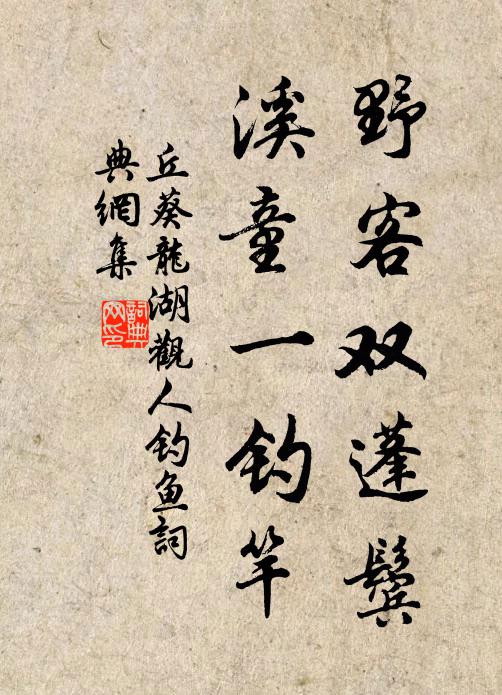 野客双蓬鬓
溪童一钓竿
丘葵龍湖觀人钓鱼詞
典網集
詞典网印